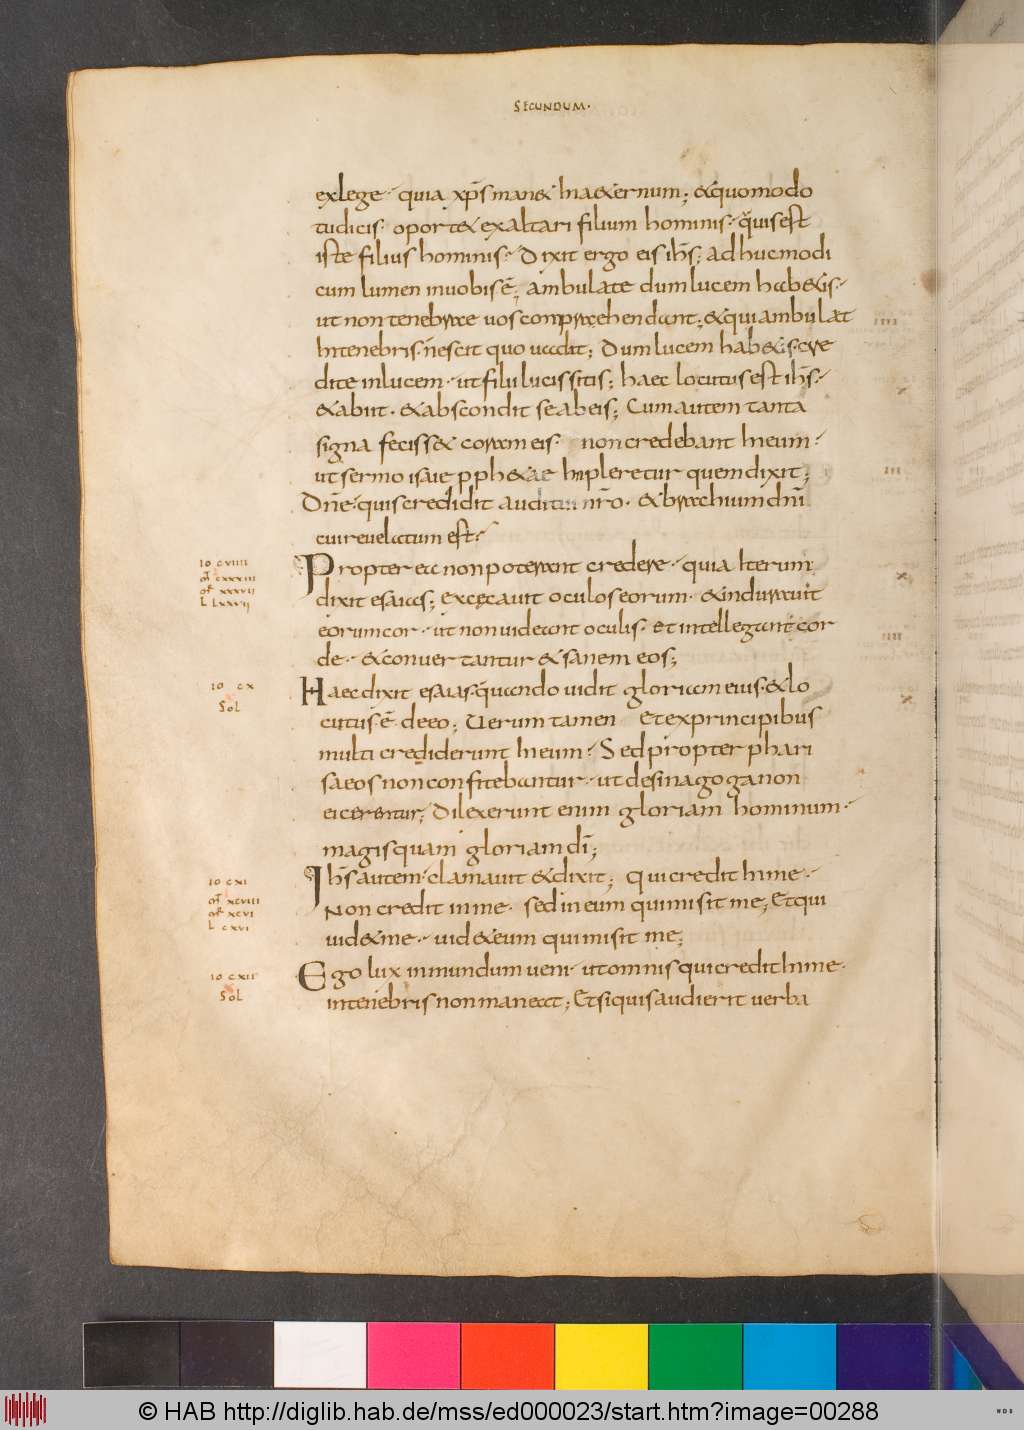 SECUNDUM·
ex lege· quia xp̄s man& In a&ernum; &quomodo
tudicis· oport& exaltari filium hominis· quis est
iste filius hominis· Dixit ergo eis ih̄s; adhuc modi
cum lumen in uobis ē; ambulate dum lucem hab&is·
ut non tenebrae uos compraehendant; & qui ambulat
In tenebris n̄escit quo uadit; Dum lucem hab&is· cre
dite in lucem· ut filii lucis sitis; haec locutus est ih̄s·
& abiit· & abscondit se ab eis; Cum autem tanta
signa feciss& coram eis· non credebant In eum·
ut sermo isaie pph&ae Impleretur quem dixit;
Dn̄e· quis credidit auditui nr̄o· & brachium dn̄i
cui reuelatum est·
IO CVIIII
MT CXXXIII
MR XXXVII
L LXXVII
Propterea non poterant credere· quia Iterum
dixit esaias; excęcauit oculos eorum· & indurauit
eorum cor· ut non uideant oculis· et intellegant cor
de· & conuertantur & sanem eos;
IO CX
SOL
Haec dixit esaias· quando uidit gloriam eius· & lo
cutus ē de eo; Uerum tamen et ex principibus
multi crediderunt In eum· Sed propter phari
saeos non confitebantur· ut de sinagoga non
eicerentur; Dilexerunt enim gloriam hominum·
magis quam gloriam dī;
IO CXI
MT XCVIII
MR XCVI
L CXVI
Ih̄s autem· clamauit & dixit; qui credit In me·
Non credit in me· sed in eum qui misit me; Et qui
uid& me· uid& eum qui misit me;
IO CXII
SOL
Ego lux in mundum ueni· ut omnis qui credit In me·
in tenebris non maneat; Et si quis audierit uerba
© HAB http://diglib.hab.de/mss/ed000023/start.htm?image=00288